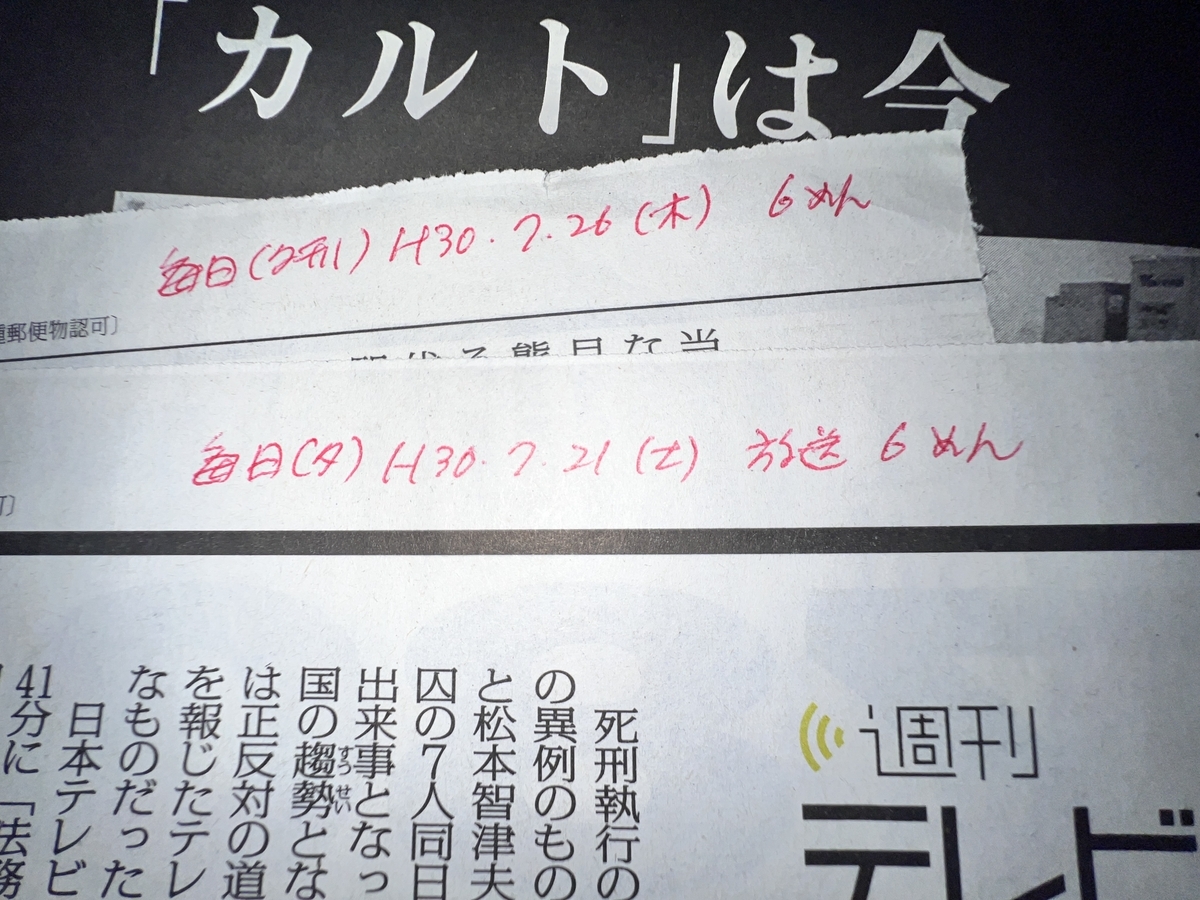 「カルト」は今
毎日(夕刊) H30.7.26(木) 6めん
郵便物認可〕
毎日(夕) H30.7.21(土) 放送 6めん
可〕
週刊
テレビ
死刑執行の
の異例のもの
と松本智津夫
囚の7人同日
出来事となっ
国の趨勢とな
すうせい
は正反対の道
を報じたテレ
なものだった
日本テレビ
41分に「法務